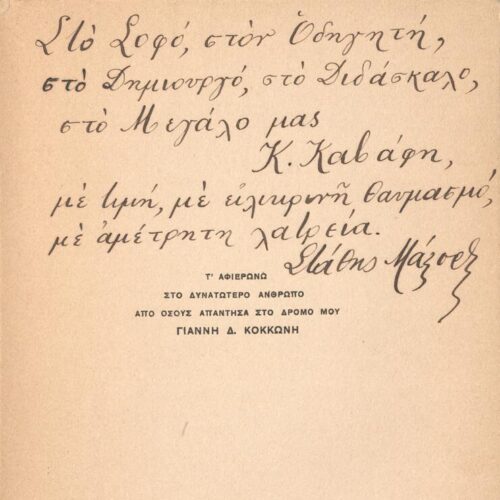 Στὸ Σοφό, στὸν Ὁδηγητή,
στὸ Δημιουργό, στὸ Διδάσκαλο,
στὸ Μεγάλο μας
Κ. Καβάφη,
μὲ τιμή, μὲ εἰλικρινῆ θαυμασμό,
μὲ ἀμέτρητη λατρεία.
Στάθης Μάξος
Τ' ΑΦΙΕΡΩΝΩ
ΣΤΟ ΔΥΝΑΤΩΤΕΡΟ ΑΝΘΡΩΠΟ
ΑΠΟ ΟΣΟΥΣ ΑΠΑΝΤΗΣΑ ΣΤΟ ΔΡΟΜΟ ΜΟΥ
ΓΙΑΝΝΗ Δ. ΚΟΚΚΩΝΗ